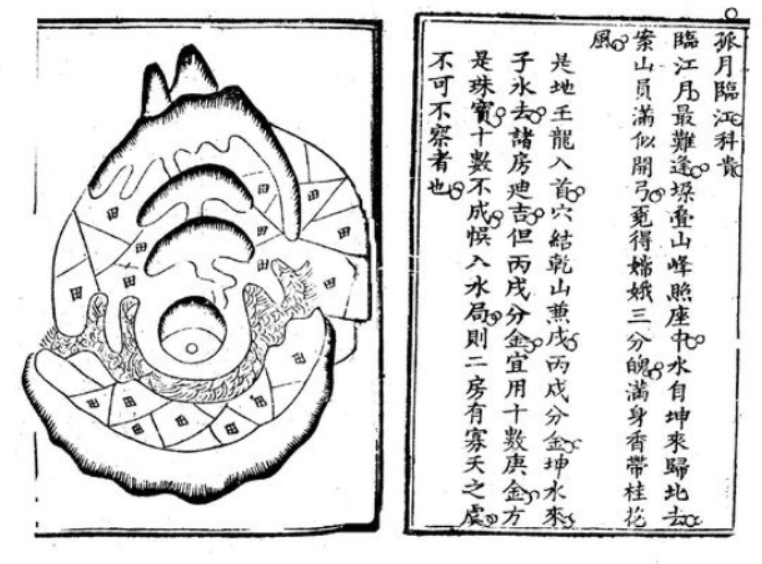 孤月臨江科貴
臨江月最難逢垛叠山峰照座中水自坤來歸北去
案山員滿似開弓竟得嫦娥三分魄滿身香帶桂花
風
是地王龍入首穴結乾山兼戌丙戌分金坤水來
子水去諸房廸吉但丙戌分金宜用十數庚金方
是珠寶十數不成悮入水局則二房有寡夭之虞
不可不察者也
田
田
田
田
田
田
田
田
田
田
田
田
田
田